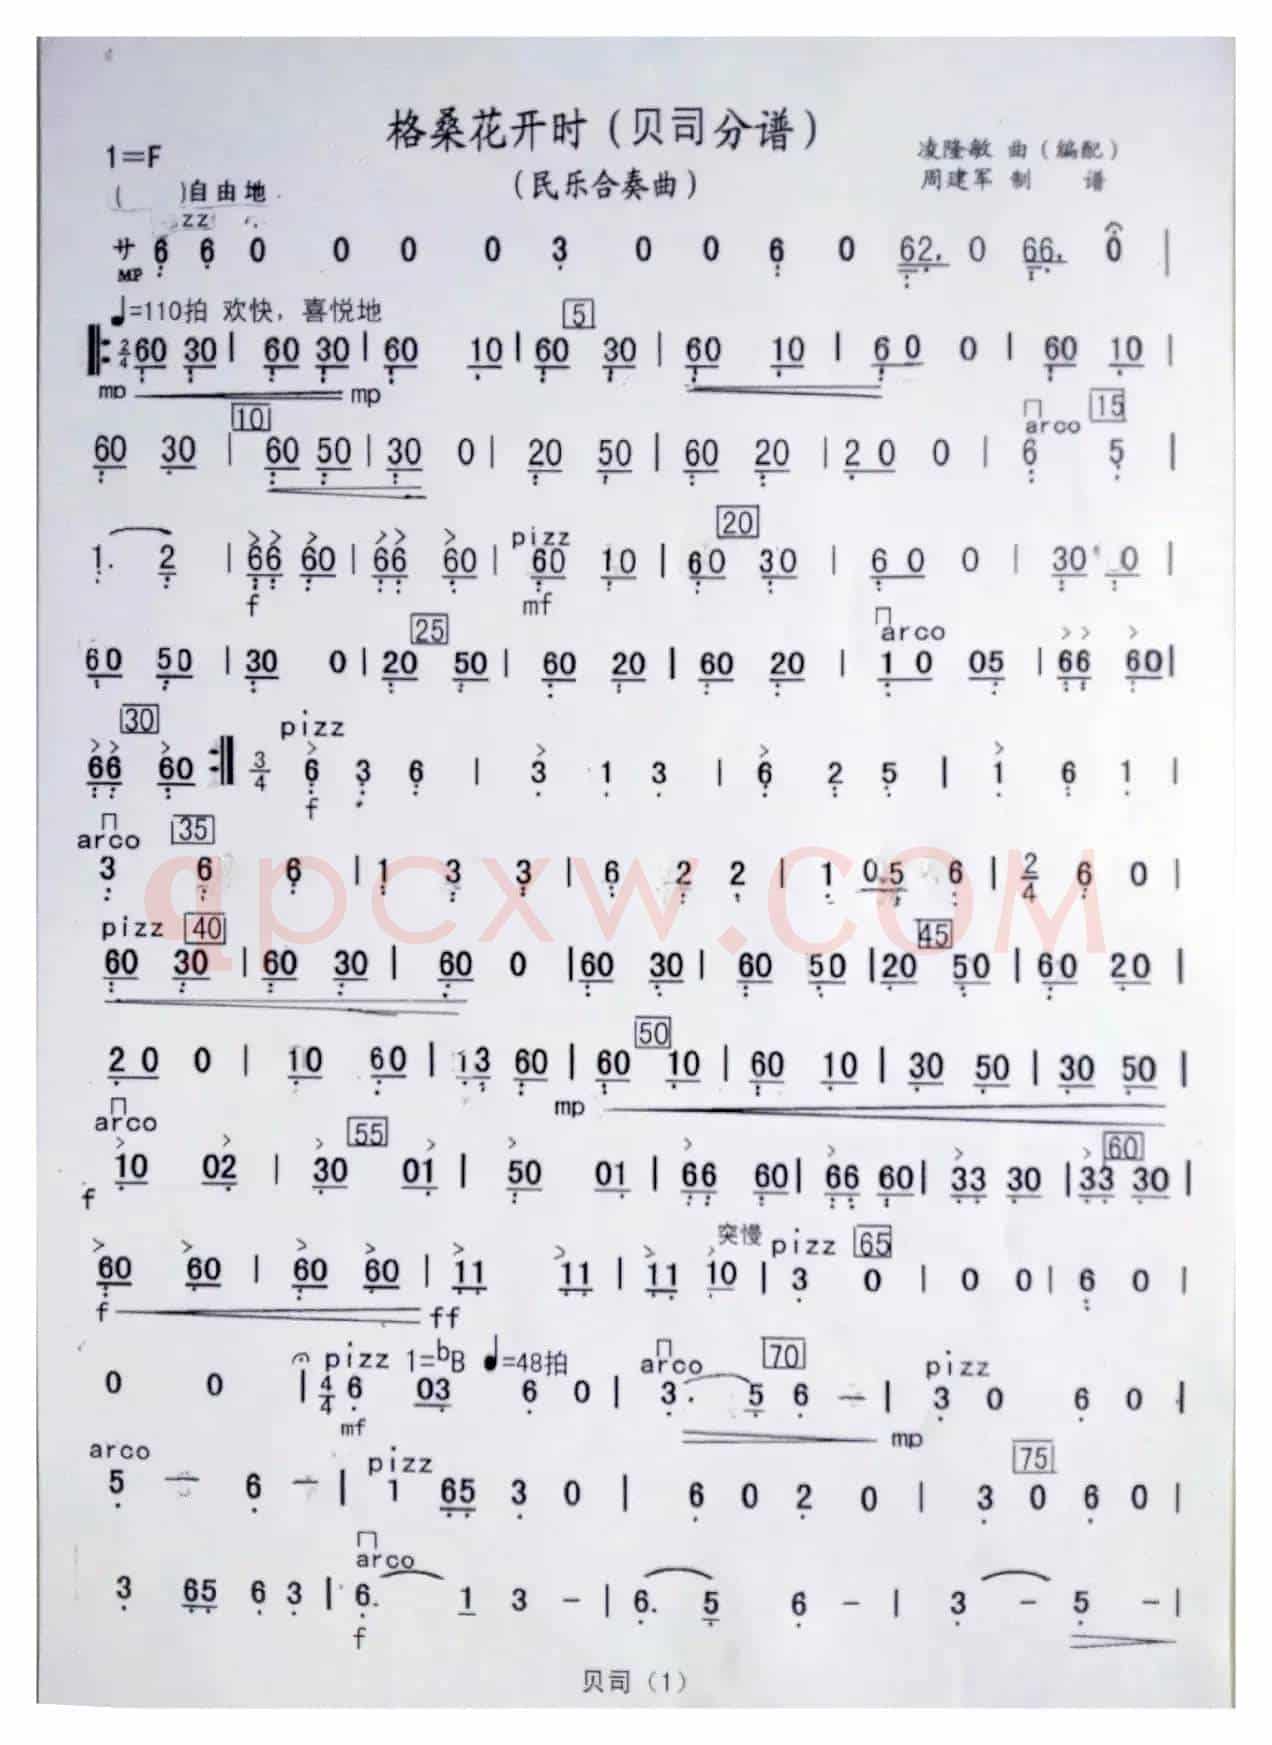 格桑花开时（贝司分谱）
1=F
（民乐合奏曲）
凌隆敏 曲（编配）
周建军 制 谱
( )自由地
zz
サ 6 6 0 0 0 0 3 0 0 6 0 62. 0 66. 0 |
MP
♩=110拍 欢快，喜悦地 5
‖: 2/4 60 30 | 60 30 | 60 10 | 60 30 | 60 10 | 60 0 | 60 10 |
mp mp
10 arco 15
60 30 | 60 50 | 30 0 | 20 50 | 60 20 | 20 0 | 6 5 |
pizz 20
1. 2 | 66 60 | 66 60 | 60 10 | 60 30 | 60 0 | 30 0 |
f mf
25 arco
60 50 | 30 0 | 20 50 | 60 20 | 60 20 | 10 05 | 66 60 |
30 pizz
66 60 :‖ 3/4 6 3 6 | 3 1 3 | 6 2 5 | 1 6 1 |
f
arco 35
3 6 6 | 1 3 3 | 6 2 2 | 1 0.5 6 | 2/4 6 0 |
qpcxw.com
pizz 40 45
60 30 | 60 30 | 60 0 | 60 30 | 60 50 | 20 50 | 60 20 |
50
20 0 | 10 60 | 13 60 | 60 10 | 60 10 | 30 50 | 30 50 |
mp
arco 55 60
10 02 | 30 01 | 50 01 | 66 60 | 66 60 | 33 30 | 33 30 |
f
突慢 pizz 65
60 60 | 60 60 | 11 11 | 11 10 | 3 0 | 0 0 | 6 0 |
f ff
pizz 1=bB ♩=48拍 arco 70 pizz
0 0 | 4/4 6 03 6 0 | 3. 5 6 — | 3 0 6 0 |
mf mp
arco pizz 75
5 — 6 — | 1 65 3 0 | 6 0 2 0 | 3 0 6 0 |
arco
3 65 6 3 | 6. 1 3 — | 6. 5 6 — | 3 — 5 — |
f
贝司（1）